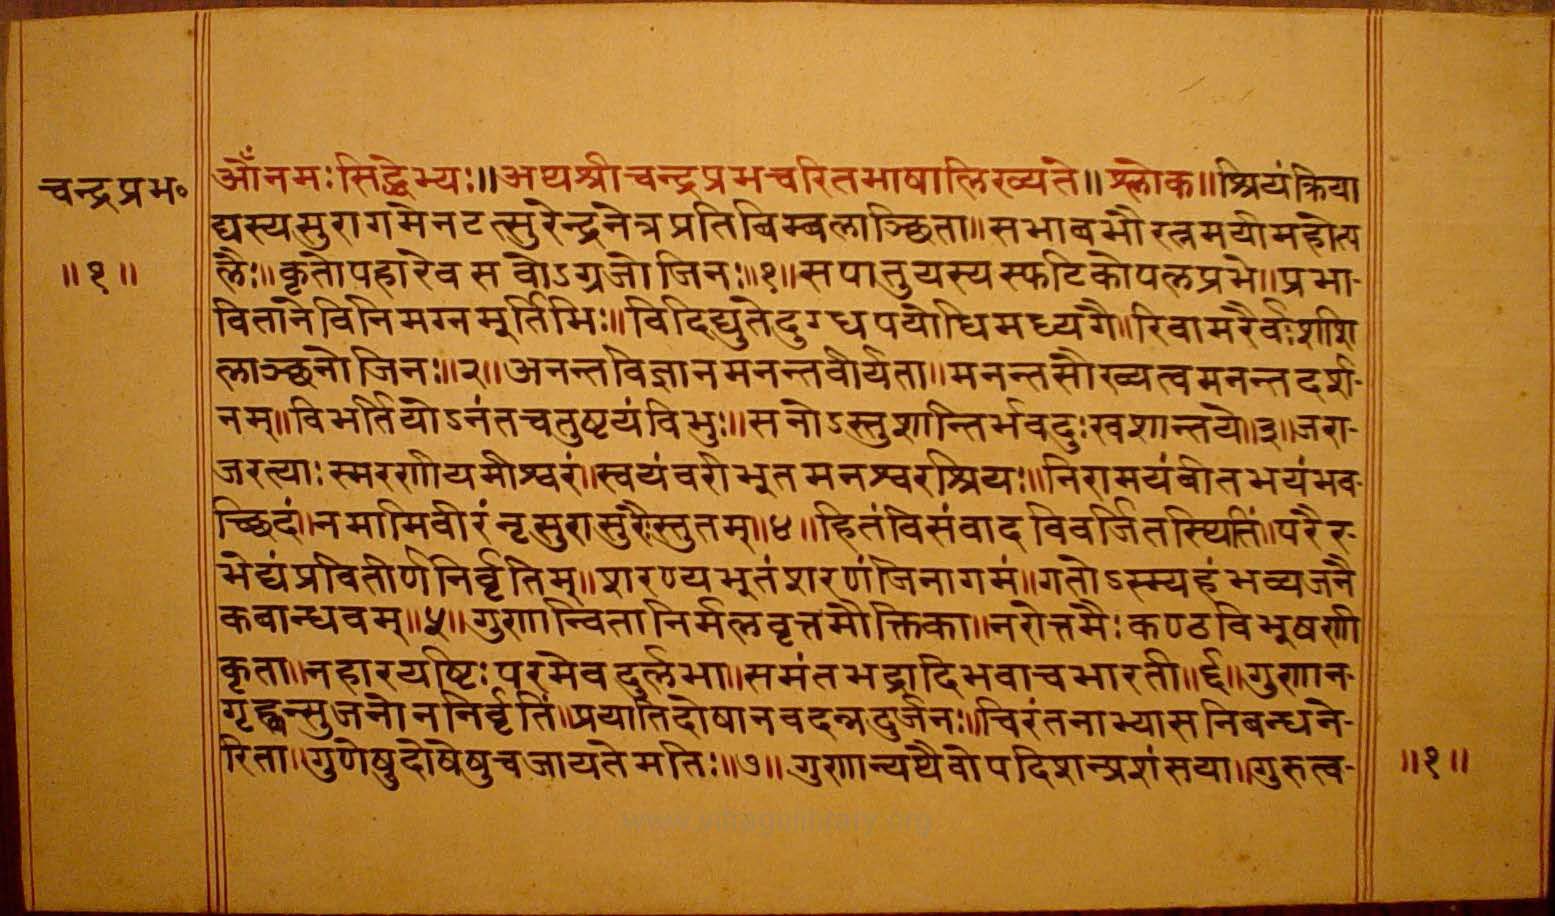 चन्द्रप्रभ॰
॥१॥
ओँ नमः सिद्धेभ्यः॥ अथ श्री चन्द्रप्रभचरितभाषा लिख्यते॥ श्लोक॥ श्रियं क्रिया
द्यस्य सुरागमे नटत्सुरेन्द्रनेत्रप्रतिबिम्बलाञ्छिता॥ सभा बभौ रत्नमयी महोत्प
लैः॥ कृतोपहारेव स वोऽग्रजो जिनः॥१॥ स पातु यस्य स्फटिकोपलप्रभे॥ प्रभा-
वितानेविनिमग्नमूर्तिभिः॥ विदिद्युते दुग्धपयोधिमध्यगै॥ रिवामरैर्वः शशि
लाञ्छनो जिनः॥२॥ अनन्तविज्ञानमनन्तवीर्यता॥ मनन्तसौख्यत्वमनन्तदर्श-
नम्॥ विभर्ति योऽनंतचतुष्टयं विभुः॥ स नोऽस्तु शान्तिर्भवदुःखशान्तये॥३॥ जरा-
जरत्याः स्मरणीयमीश्वरं॥ स्वयंवरीभूतमनश्वरश्रियः॥ निरामयं वीतभयं भव-
च्छिदं॥ नमामि वीरं नृसुरासुरैः स्तुतम्॥४॥ हितं विसंवादविवर्जितस्थितिं॥ परैर-
भेद्यं प्रवितीर्णनिर्वृतिम्॥ शरण्यभूतं शरणं जिनागमं॥ गतोऽस्म्यहं भव्यजनै
कबान्धवम्॥५॥ गुणान्विता निर्मलवृत्तमौक्तिका॥ नरोत्तमैः कण्ठविभूषणी
कृता॥ न हारयष्टिः परमेव दुर्लभा॥ समंतभद्रादिभवा च भारती॥६॥ गुणान-
गृह्णन्सुजनो न निर्वृतिं॥ प्रयाति दोषानवदन्न दुर्जनः॥ चिरंतनाभ्यासनिबन्धने-
रिता॥ गुणेषु दोषेषु च जायते मतिः॥७॥ गुणान्यथैवोपदिशन्प्रशंसया॥ गुरुत्व-
॥१॥
www.vitragvilibrary.org